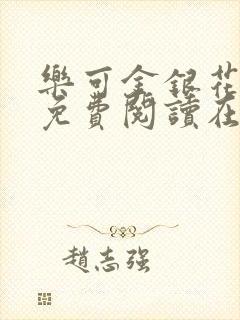 樂可金銀花
免費閱讀在
趙志強